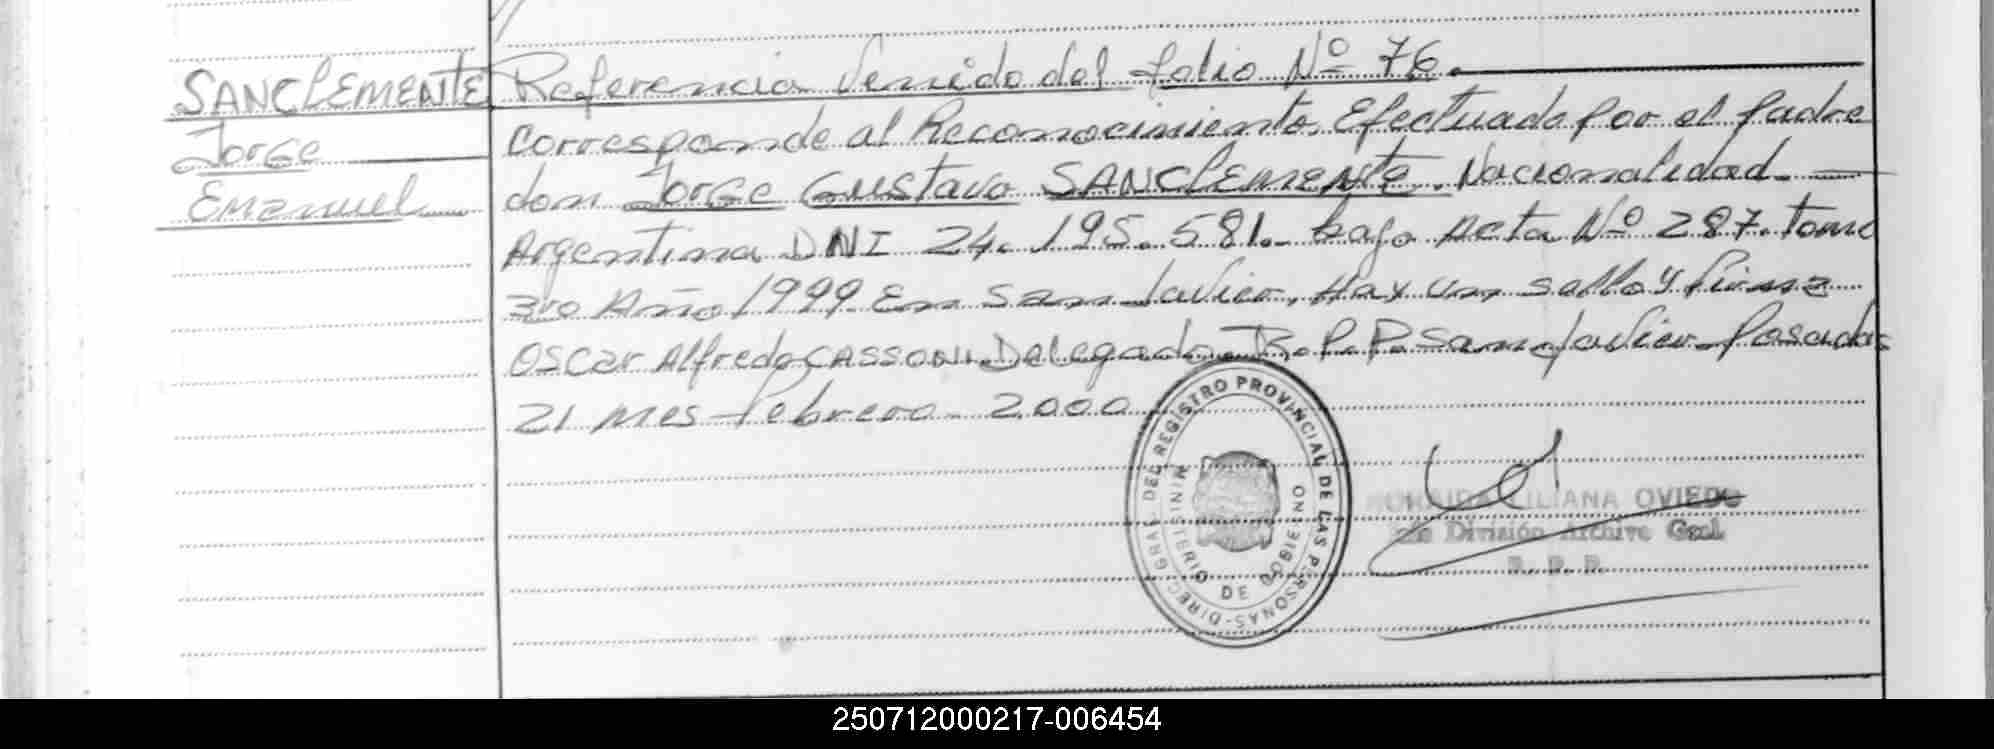 SANCLEMENTE
Jorge
Emanuel
Referencia Venido del folio Nº 76.
Corresponde al Reconocimiento Efectuado por el padre
don Jorge Gustavo SANCLEMENTE. Nacionalidad
Argentina DNI 24.195.581. bajo Acta Nº 287. tomo
3ro Año 1999. En San Javier, Hay un sello y firma
Oscar Alfredo CASSONI. Delegado R.P.P. San Javier. Posadas
21 mes febrero 2000
DIREC GRAL DEL REGISTRO PROVINCIAL DE LAS PERSONAS-
MINISTERIO DE GOBIERNO
LILIANA OVIEDO
División Archivo Gral.
R. P. P.
250712000217-006454